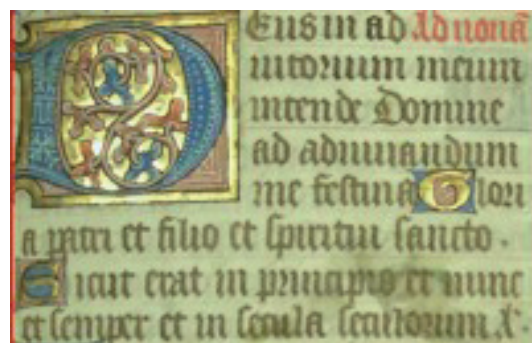 Deus in ad Ad nonã
iutorium meum
intende Domine
ad adiuuandum
me festina Glori
a patri et filio et spiritui sancto.
Sicut erat in principio et nunc
et semper et in secula seculorum